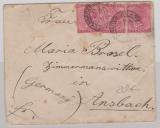 Frau
Maria Brosel.
Zimmermannswittwe,
in
(Germany)
Ansbach